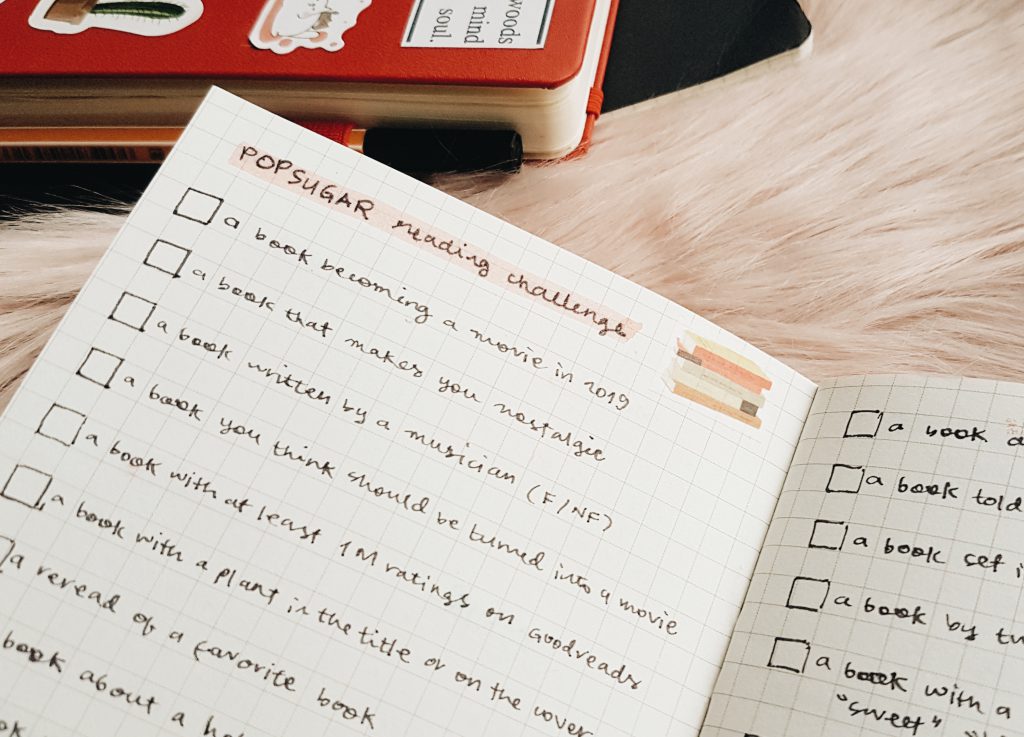 woods
mind
soul.
POPSUGAR reading challenge
a book becoming a movie in 2019
a book that makes you nostalgic
a book written by a musician (F/NF)
a book you think should be turned into a movie
a book with at least 1M ratings on Goodreads
a book with a plant in the title or on the cover
a reread of a favorite book
book about a
a book
a book told
a book set
a book by
a book with a
"sweet"